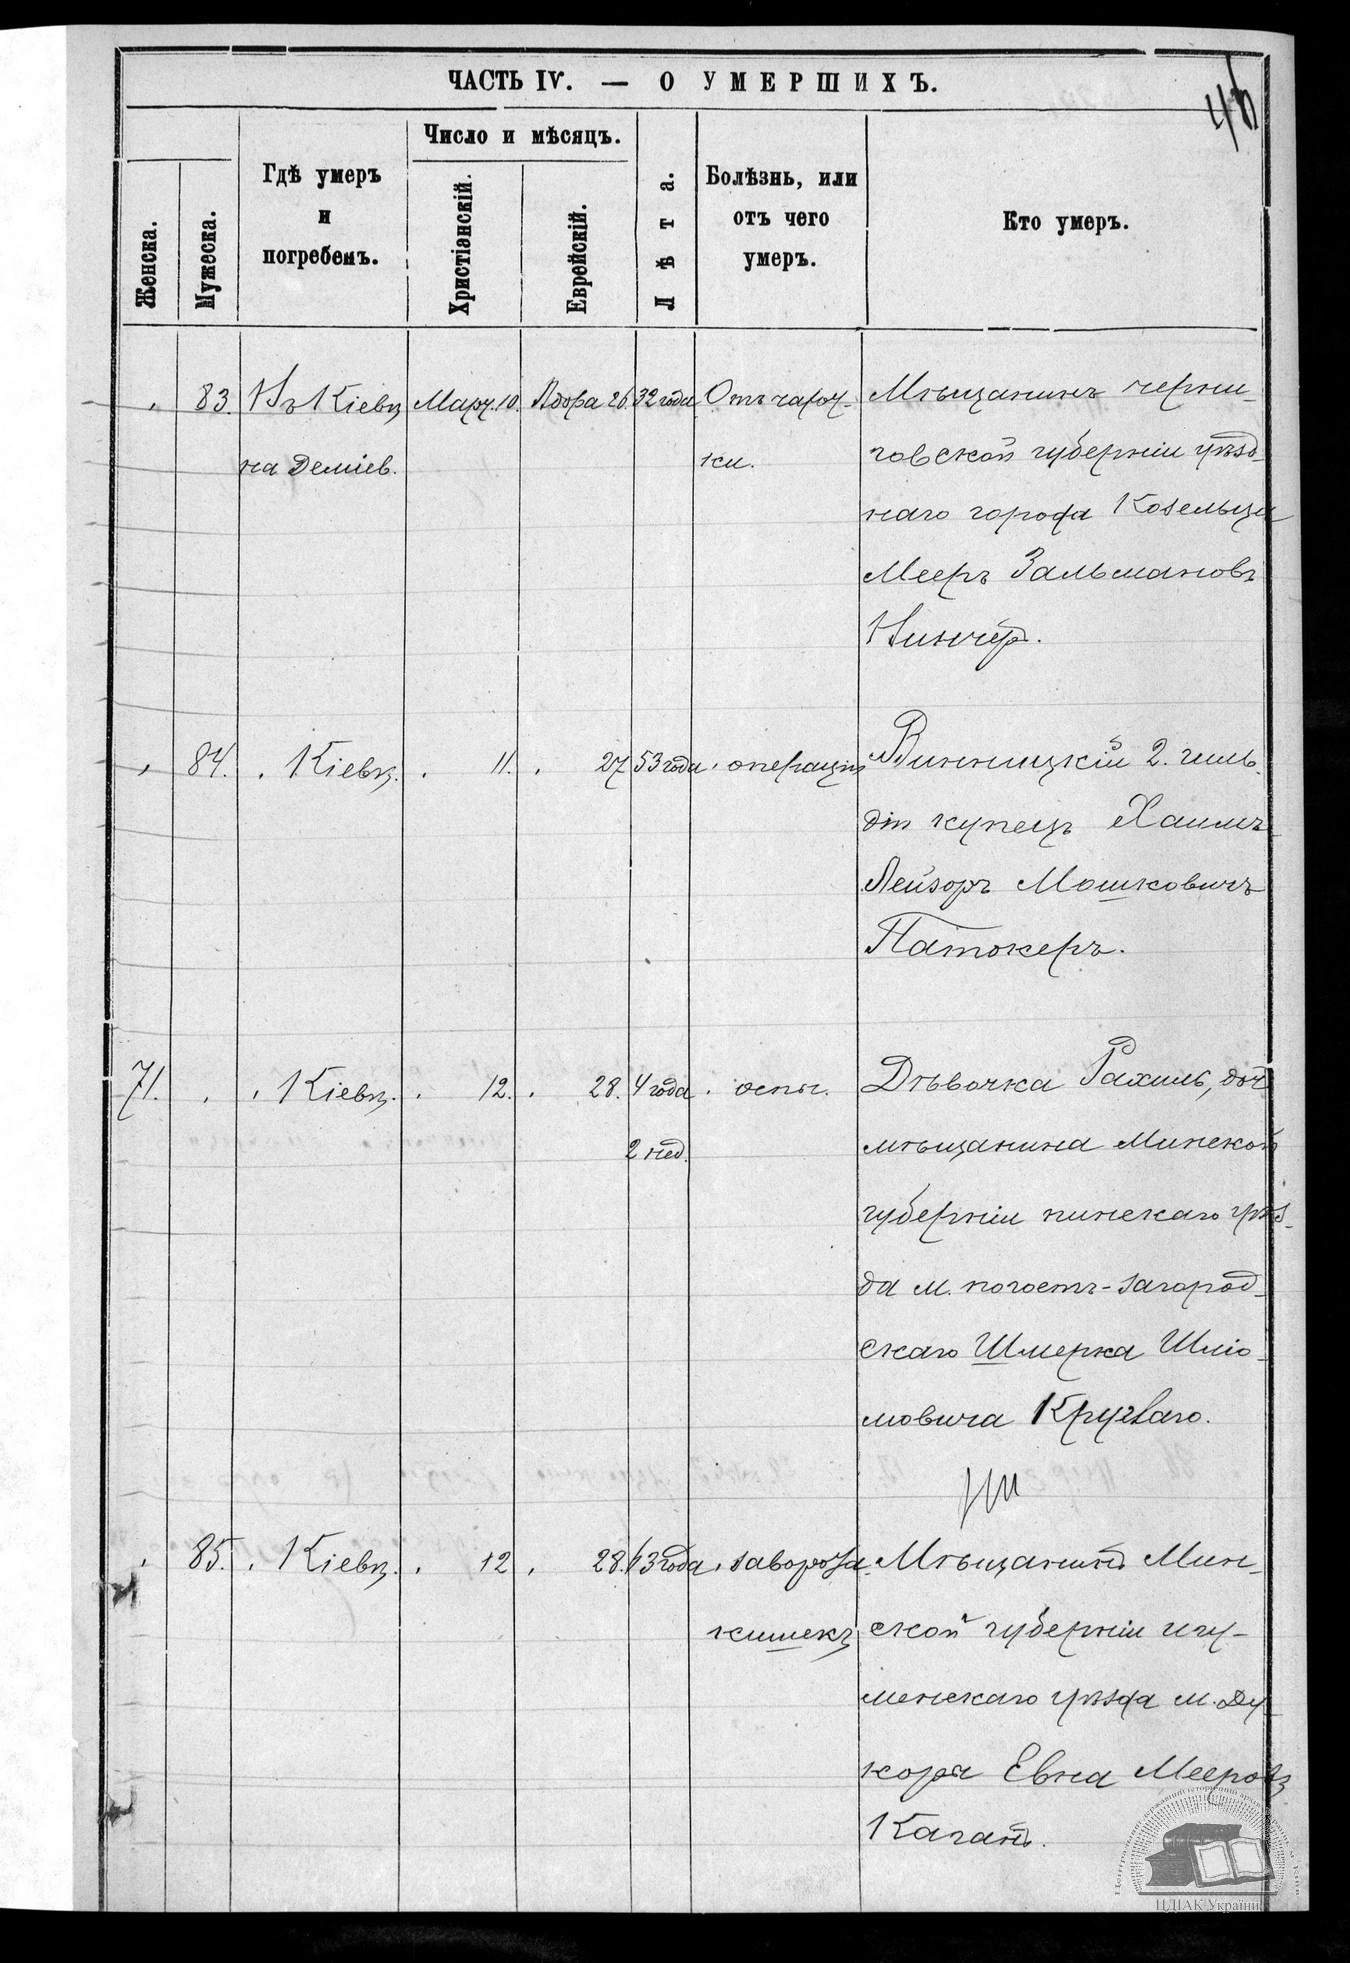 ЧАСТЬ IV. — О УМЕРШИХЪ.
Женска.
Мужеска.
Гдѣ умеръ
и
погребенъ.
Число и мѣсяцъ.
Христіанскій.
Еврейскій.
Лѣта.
Болѣзнь, или
отъ чего
умеръ.
Кто умеръ.
83. Въ Кіевѣ Март. 10. Адора 26. 32 года Отъ чахот- Мѣщанинъ черни-
на Деміев. ки. говской губерніи уѣзд-
наго города Козельца
Мееръ Зальмановъ
84. Кіевѣ. 11. 27 53 года операціи Винницкій 2. гиль-
діи купецъ Хаимъ
Лейзоръ Мошковичъ
Патокеръ.
71. Кіевѣ. 12. 28. 4 года оспы. Дѣвочка Рахиль, доч
2 нед. мѣщанина Минской
губерніи пинскаго уѣз-
да м. погостъ-загород-
скаго Шмерка Шлио-
мовича Круглаго.
85. Кіевѣ. 12 28. 13 года заворота Мѣщанинъ Мин-
кишекъ ской губерніи игу-
менскаго уѣзда м. Ду-
кора Евна Мееровъ
Каганъ.
ЦДІАК України